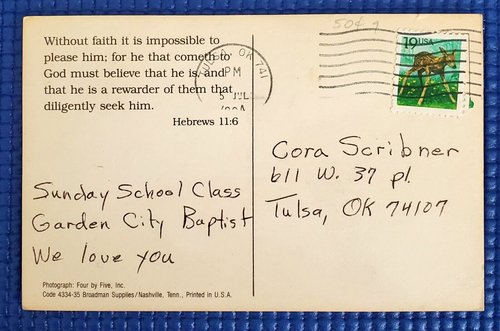 Without faith it is impossible to
please him; for he that cometh to
God must believe that he is, and
that he is a rewarder of them that
diligently seek him.
Hebrews 11:6
Sunday School Class
Garden City Baptist
We love you
Photograph: Four by Five, Inc.
Code 4334-35 Broadman Supplies/Nashville, Tenn., Printed in U.S.A.
OK 741
PM
5 JUL
50¢
19USA
Cora Scribner
611 W. 37 pl.
Tulsa, OK 74107